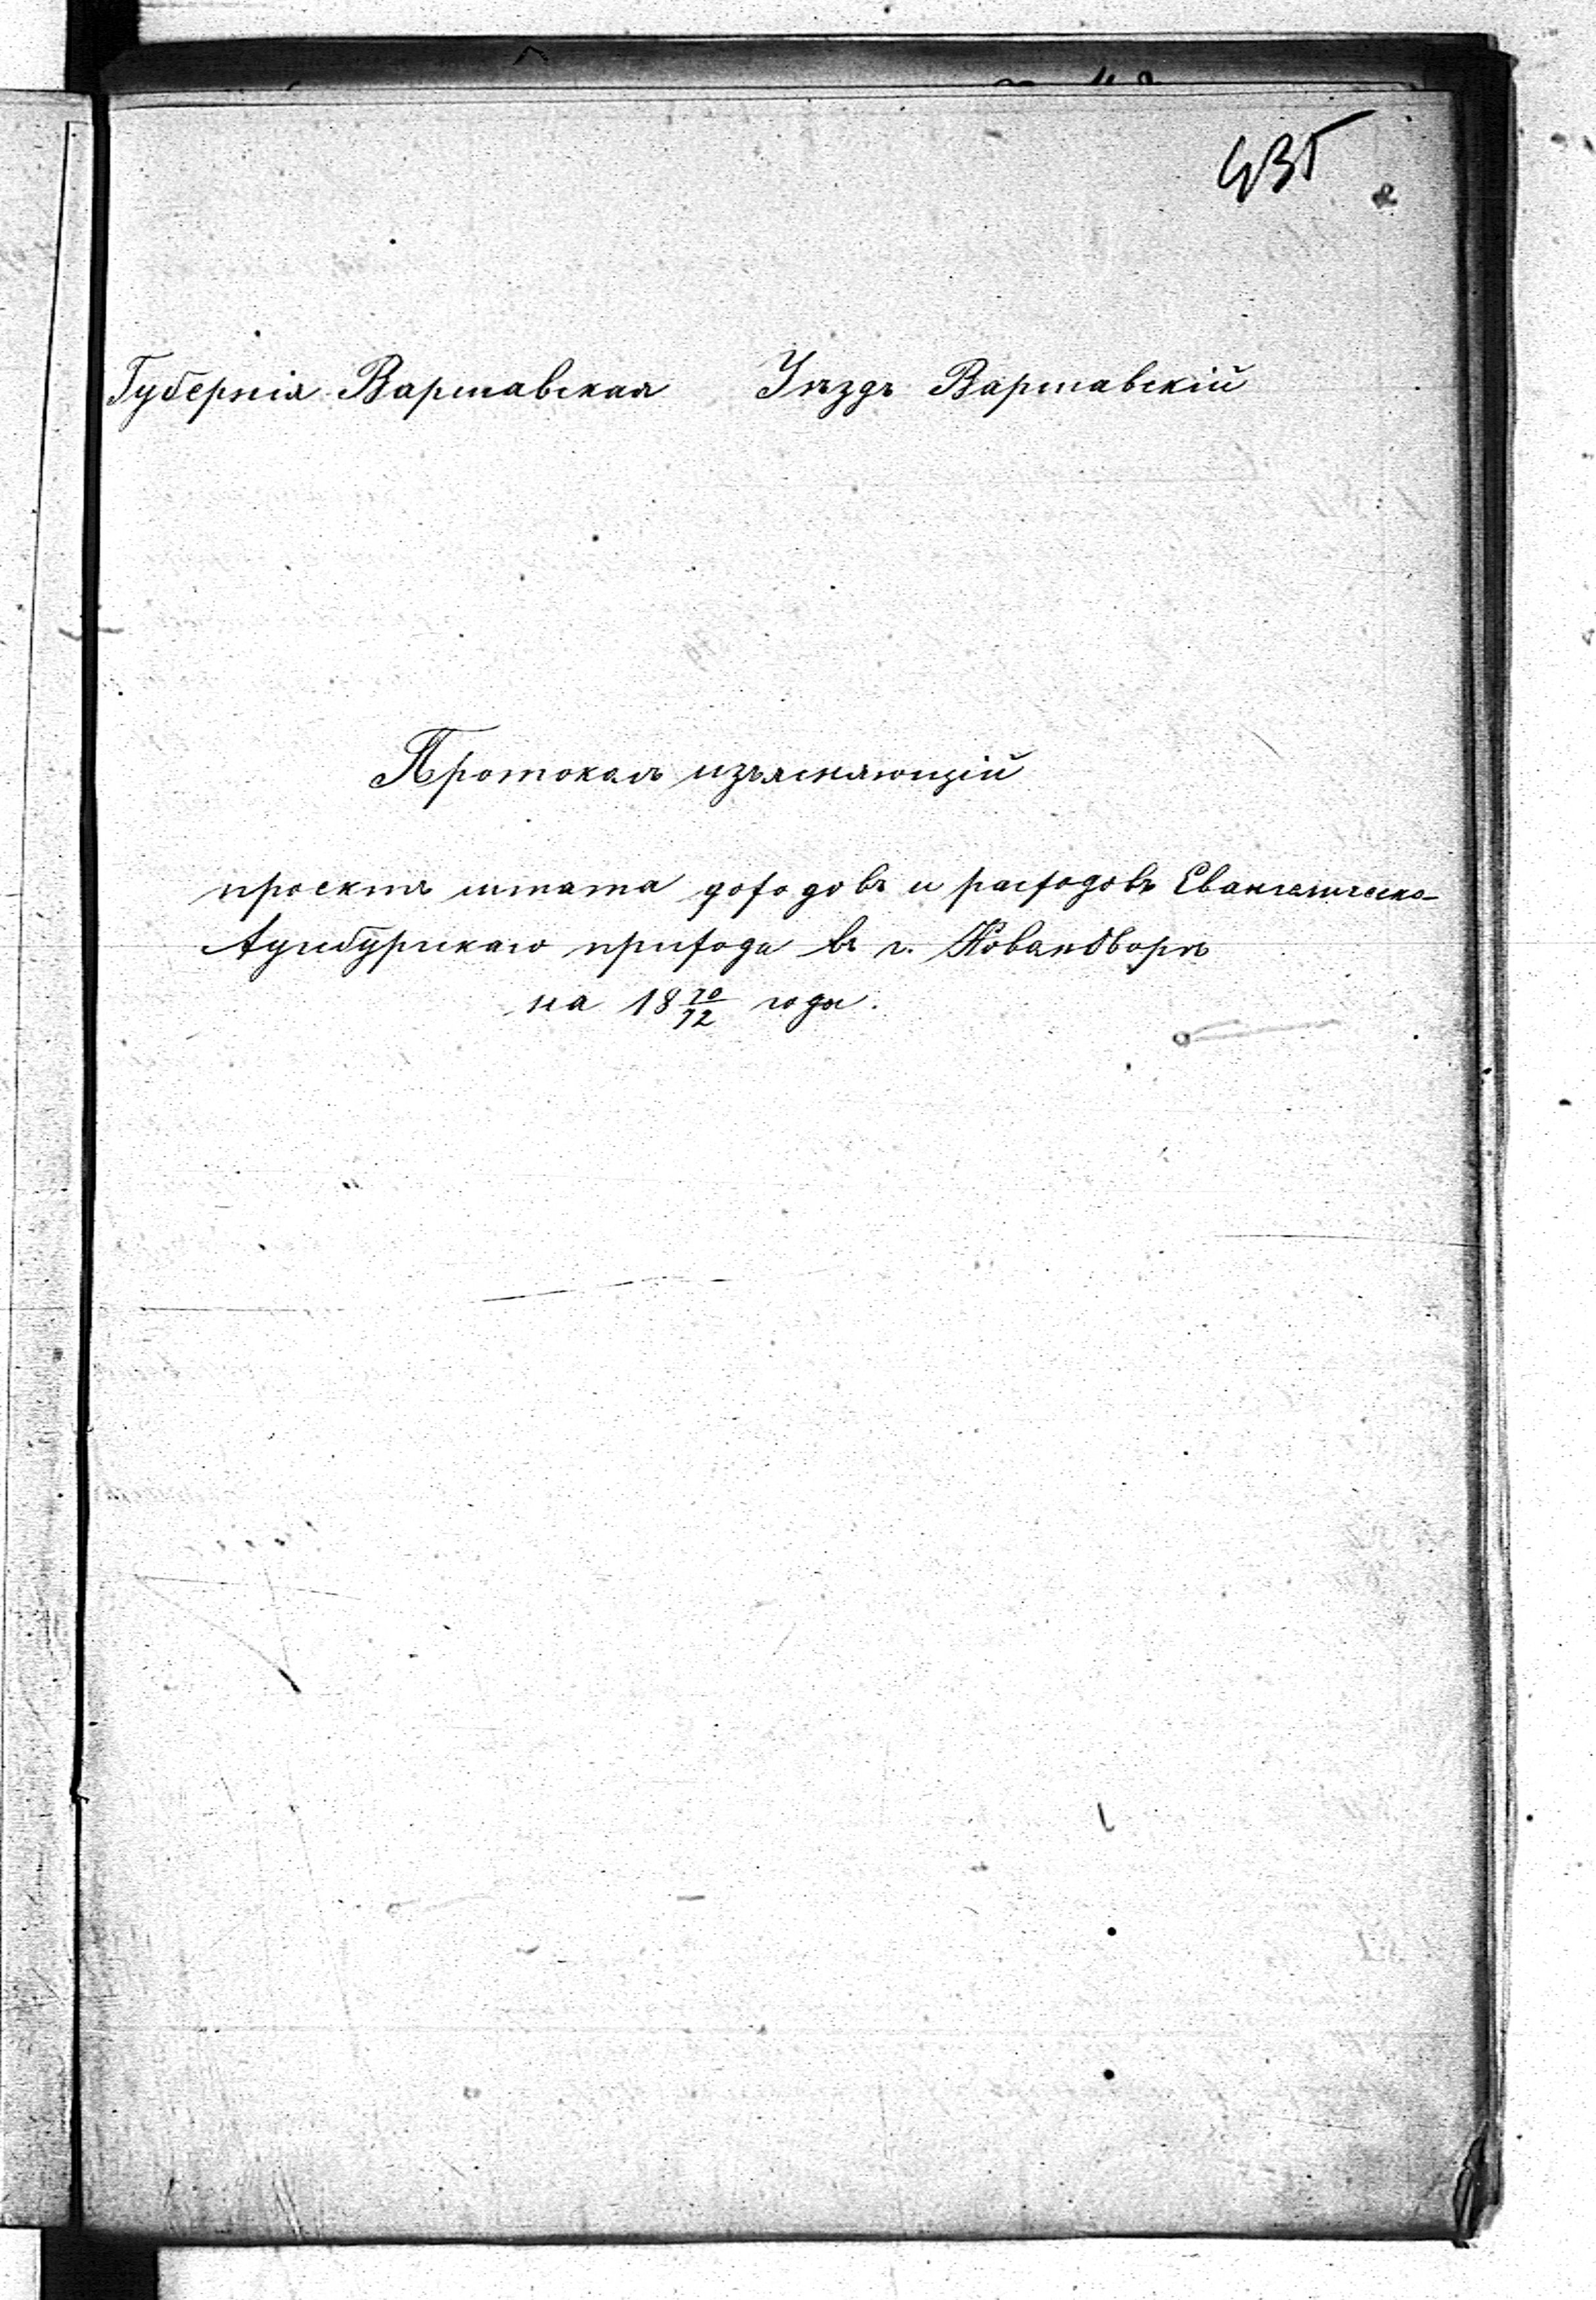 435
Губернія Варшавская Уѣздъ Варшавскій
Протоколъ изъясняющій
проектъ штата доходовъ и расходовъ Евангелическо-
Аугсбургскаго прихода въ г. Новомдворѣ
на 18 70/72 годы.